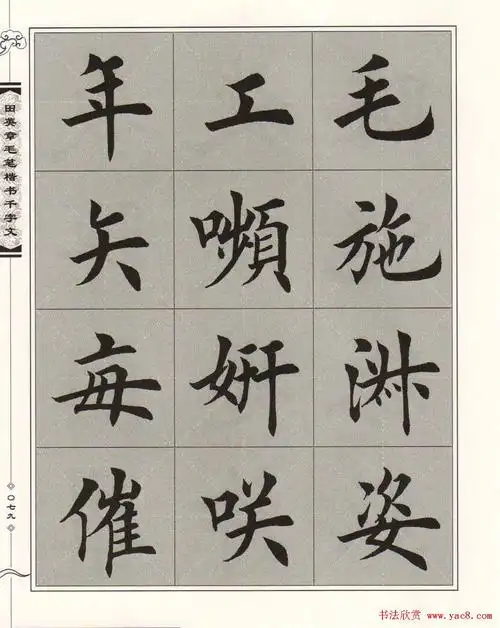 毛施淑姿
工嚬妍咲
年矢每催
田英章毛笔楷书千字文
〇七九
书法欣赏
www.yac8.com